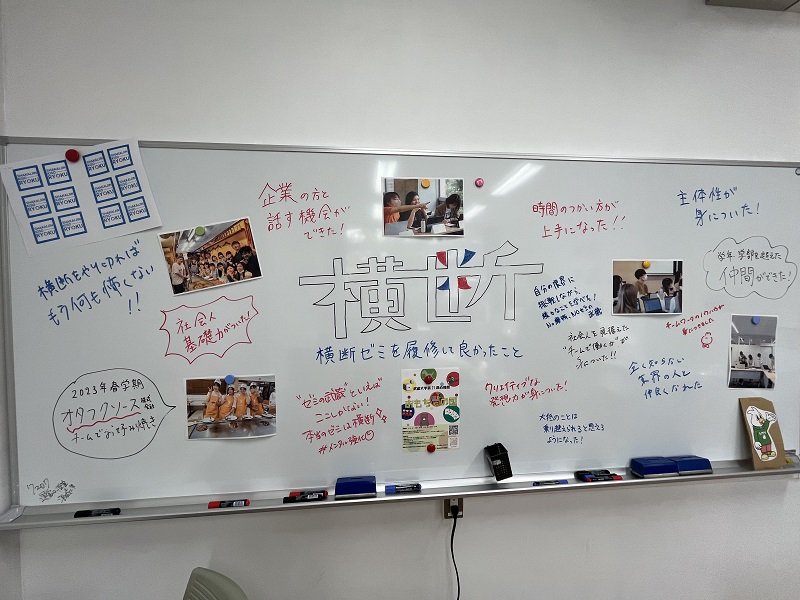 RYOKU
企業の方と
話す機会が
できた!
時間のつかい方が
上手になった!!
主体性が
身についた!
横断をやり切れば
もう何も怖くない
!!
横断
学年、学部を超えた
仲間ができた!
社会人
基礎力がついた!
横断ゼミを履修して良かったこと
自分の限界に
挑戦しながら
社会人を見据えた
"チームで働く力"が
身についた!!
チームワークのノウハウが
身につきました
全く知らない
世界の人と
仲良くなれた
2023年春学期
オタフクソース株式会社
チームでお好み焼き
"ゼミの武蔵"といえば
ここしかない!
本当のゼミは横断
#メンタル強化
クリエイティブな
発想力が身についた!
大抵のことは
乗り越えられると思える
ようになった!